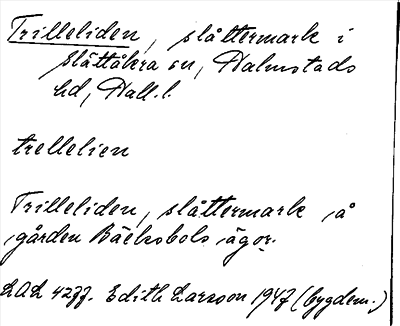 Trilleliden, slåttermark i
Slättåkra sn, Halmstads
hd, Hall. l.
trellelien
Trilleliden, slåttermark å
gården Bäcksbols ägor.
LAL 4277. Edith Larsson 1947 (bygdem.)